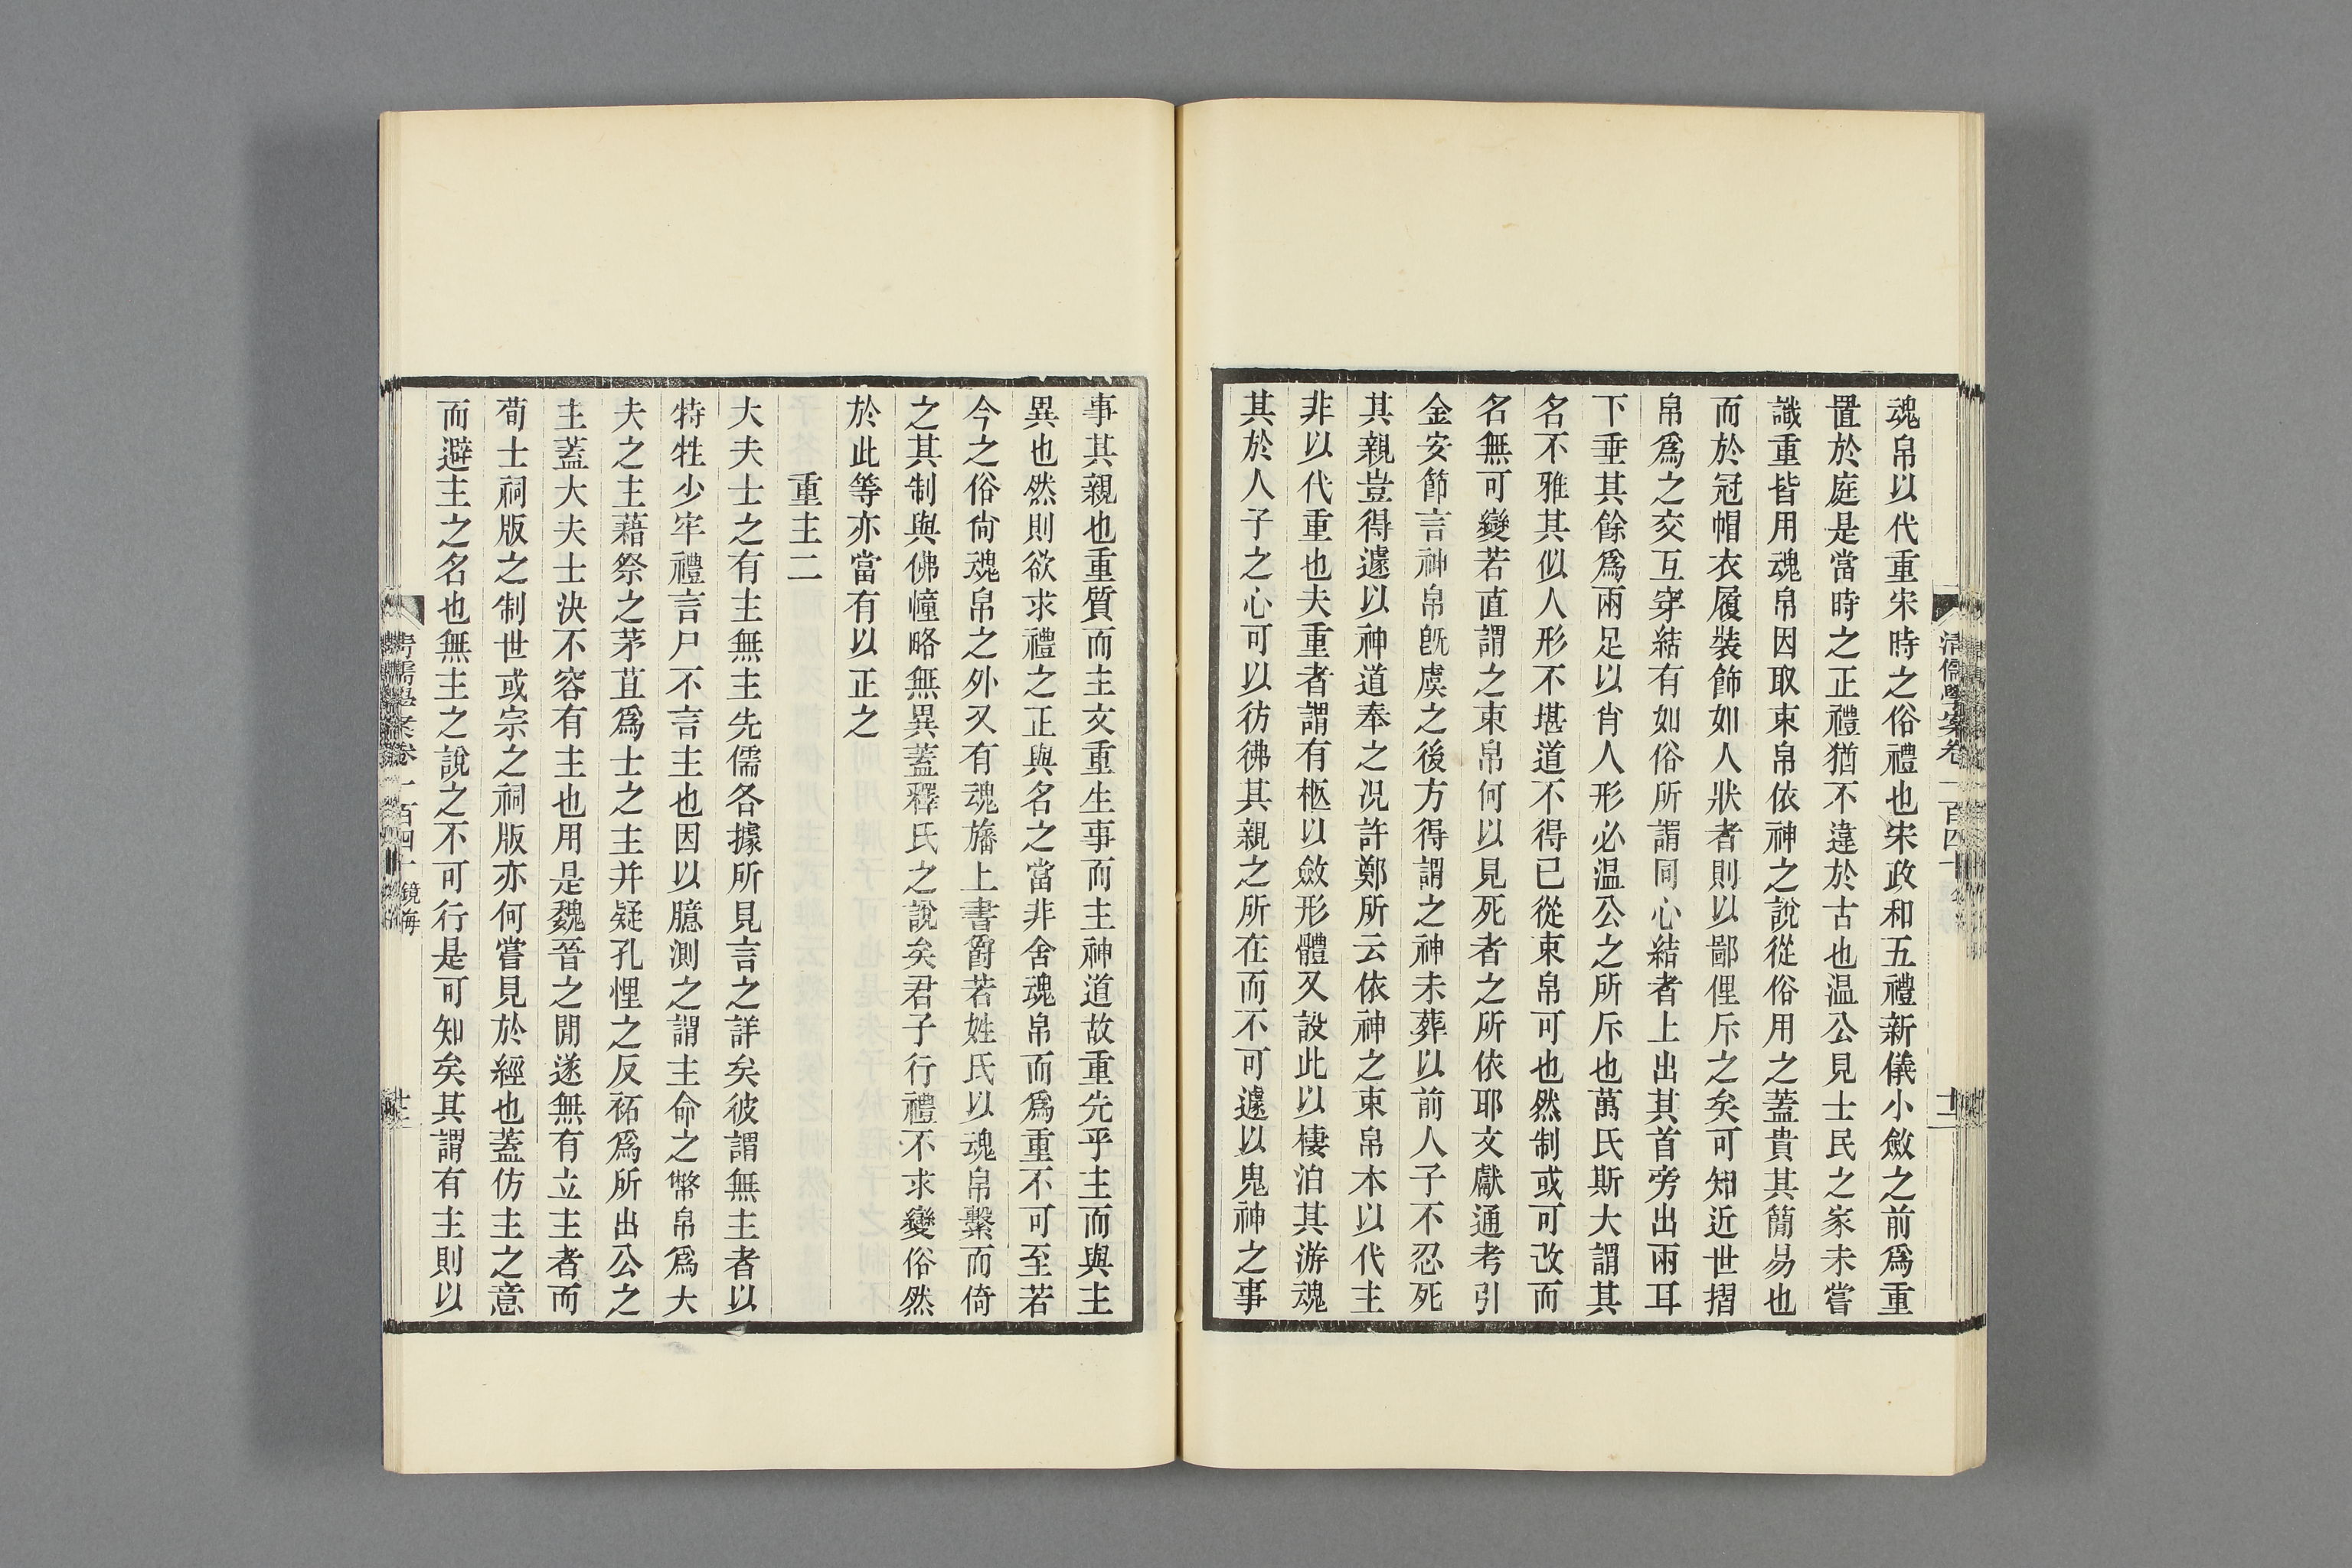 魂帛以代重宋時之俗禮也宋政和五禮新儀小斂之前爲重
置於庭是當時之正禮猶不違於古也温公見士民之家未嘗
識重皆用魂帛因取束帛依神之說從俗用之蓋貴其簡易也
而於冠帽衣履裝飾如人狀者則以鄙俚斥之矣可知近世摺
帛爲之交互穿結有如俗所謂同心結者上出其首旁出兩耳
下垂其餘爲兩足以肖人形必温公之所斥也萬氏斯大謂其
名不雅其似人形不堪道不得已從束帛可也然制或可改而
名無可變若直謂之束帛何以見死者之所依耶文獻通考引
金安節言神帛旣虞之後方得謂之神未葬以前人子不忍死
其親豈得遽以神道奉之況許鄭所云依神之束帛本以代主
非以代重也夫重者謂有柩以斂形體又設此以棲泊其游魂
其於人子之心可以彷彿其親之所在而不可遽以鬼神之事
清儒學案卷一百四十
十二
事其親也重質而主文重生事而主神道故重先乎主而與主
異也然則欲求禮之正與名之當非舍魂帛而爲重不可至若
今之俗尙魂帛之外又有魂旛上書爵若姓氏以魂帛繫而倚
之其制與佛幢略無異蓋釋氏之說矣君子行禮不求變俗然
於此等亦當有以正之
重主二
大夫士之有主無主先儒各據所見言之詳矣彼謂無主者以
特牲少牢禮言尸不言主也因以臆測之謂主命之幣帛爲大
夫之主藉祭之茅苴爲士之主并疑孔悝之反祏爲所出公之
主蓋大夫士決不容有主也用是魏晉之閒遂無有立主者而
荀士祠版之制世或宗之祠版亦何嘗見於經也蓋仿主之意
而避主之名也無主之說之不可行是可知矣其謂有主則以
清儒學案卷一百四十 鏡海